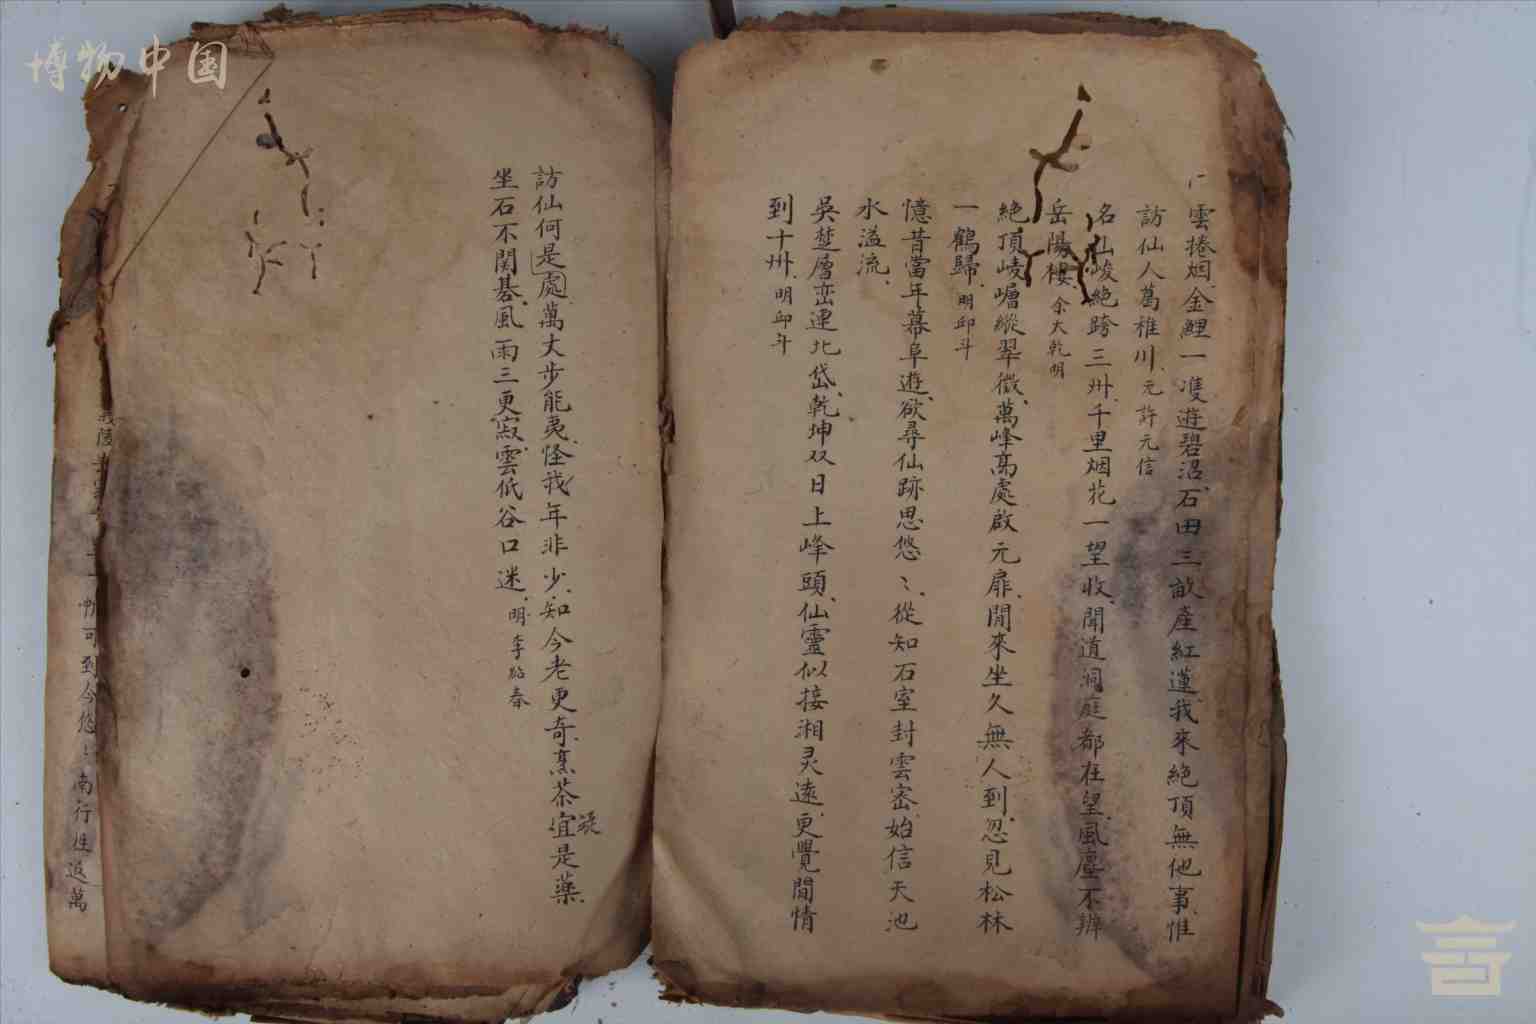 博物中国
雲捲烟、金鯉一隻遊碧沼、石田三畝産紅蓮、我來絶頂無他事、惟
訪仙人葛稚川、元許元信
名山峻絶跨三州、千里烟花一望收、聞道洞庭都在望、風塵不辨
岳陽樓、余大乾明
絶頂崚嶒縱翠微、萬峰高處啟元扉、閒來坐久無人到、忽見松林
一鶴歸、明邱斗
憶昔當年幕阜遊、欲尋仙跡思悠〻、從知石室封雲密、始信天池
水溢流、
吳楚層峦連北岱、乾坤双日上峰頭、仙靈似接湘灵遠、更覺閒情
到十州、明邱斗
訪仙何是處萬丈步能夷、怪我年非少、知今老更奇、烹茶宜是藥、
坐石不関碁、風雨三更寂、雲低谷口迷、明李紹春
可到今悠〻南行
返萬